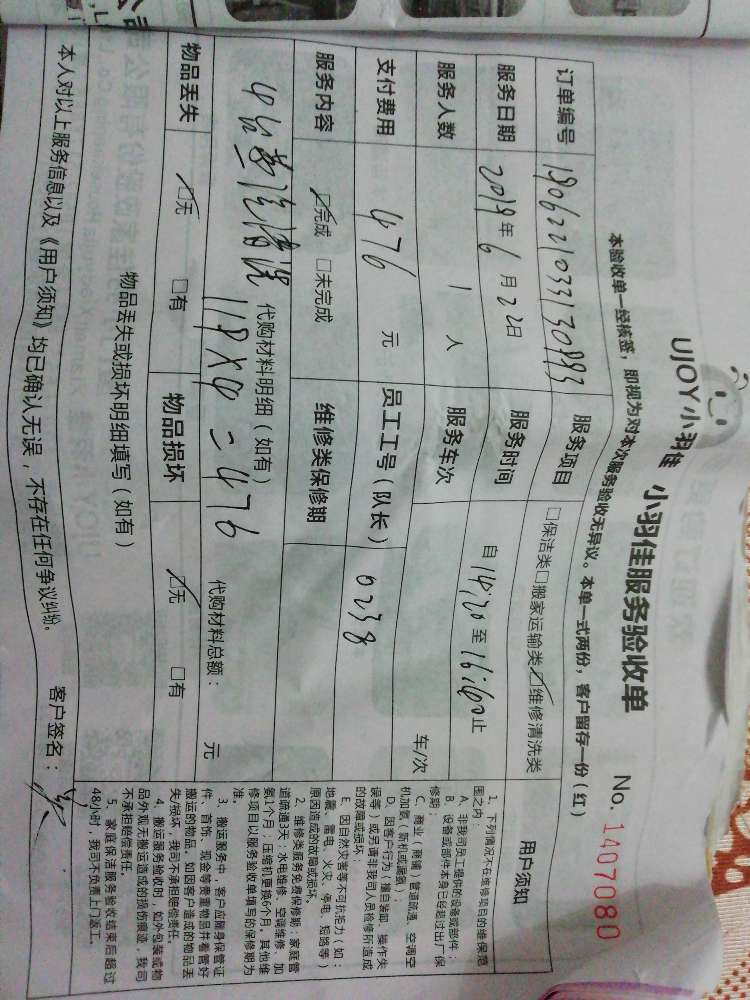 UJOY小羽佳 小羽佳服务验收单 No. 1407080
本验收单一经核签，即视为对本次服务验收无异议。本单一式两份，客户留存一份（红）
订单编号 服务项目 □保洁类□搬家运输类☑维修清洗类
服务日期 2019年6月22日 服务时间 自14:20至16:60止
服务人数 1人 服务车次 车/次
支付费用 476元 员工工号（队长） 0238
服务内容 ☑完成 □未完成 维修类保修期
代购材料明细（如有）
4台 清洗 119×4=476 代购材料总额： 元
物品丢失 ☑无 □有 物品损坏 ☑无 □有
物品丢失或损坏明细填写（如有）
本人对以上服务信息以及《用户须知》均已确认无误，不存在任何争议纠纷。
客户签名：
用户须知
1、下列情况不在维修项目的维保范
围之内：
A、非我司员工提供的设备或部件；
B、设备或部件本身已经超过出厂保
修期；
C、商业（商铺）管道疏通、空调空
机加氨、新机或漏氨）；
D、因客户行为（擅自装卸、操作失
误等）或另请非我司人员检修所造成
的故障或损坏。
E、因自然灾害等不可抗拒力（如：
地震、雷电、火灾、停电、短路等）
原因造成的故障或损坏。
2、维修类服务免费保修期：家庭管
道疏通3天；水电维修、空调维修、加
氨1个月；压缩机更换6个月，其他维
修项目以服务验收单填写的保修期为
准。
3、搬运服务中，客户应随身保管证
件、首饰、现金等贵重物品并看管好
搬运的物品，如因客户造成的物品丢
失/损坏，我司不承担赔偿责任。
4、搬运服务验收时，如外包装或物
品外观无搬运造成的损伤痕迹，我司
不承担赔偿责任。
5、家庭保洁服务验收结束后超过
48小时，我司不负责上门返工。